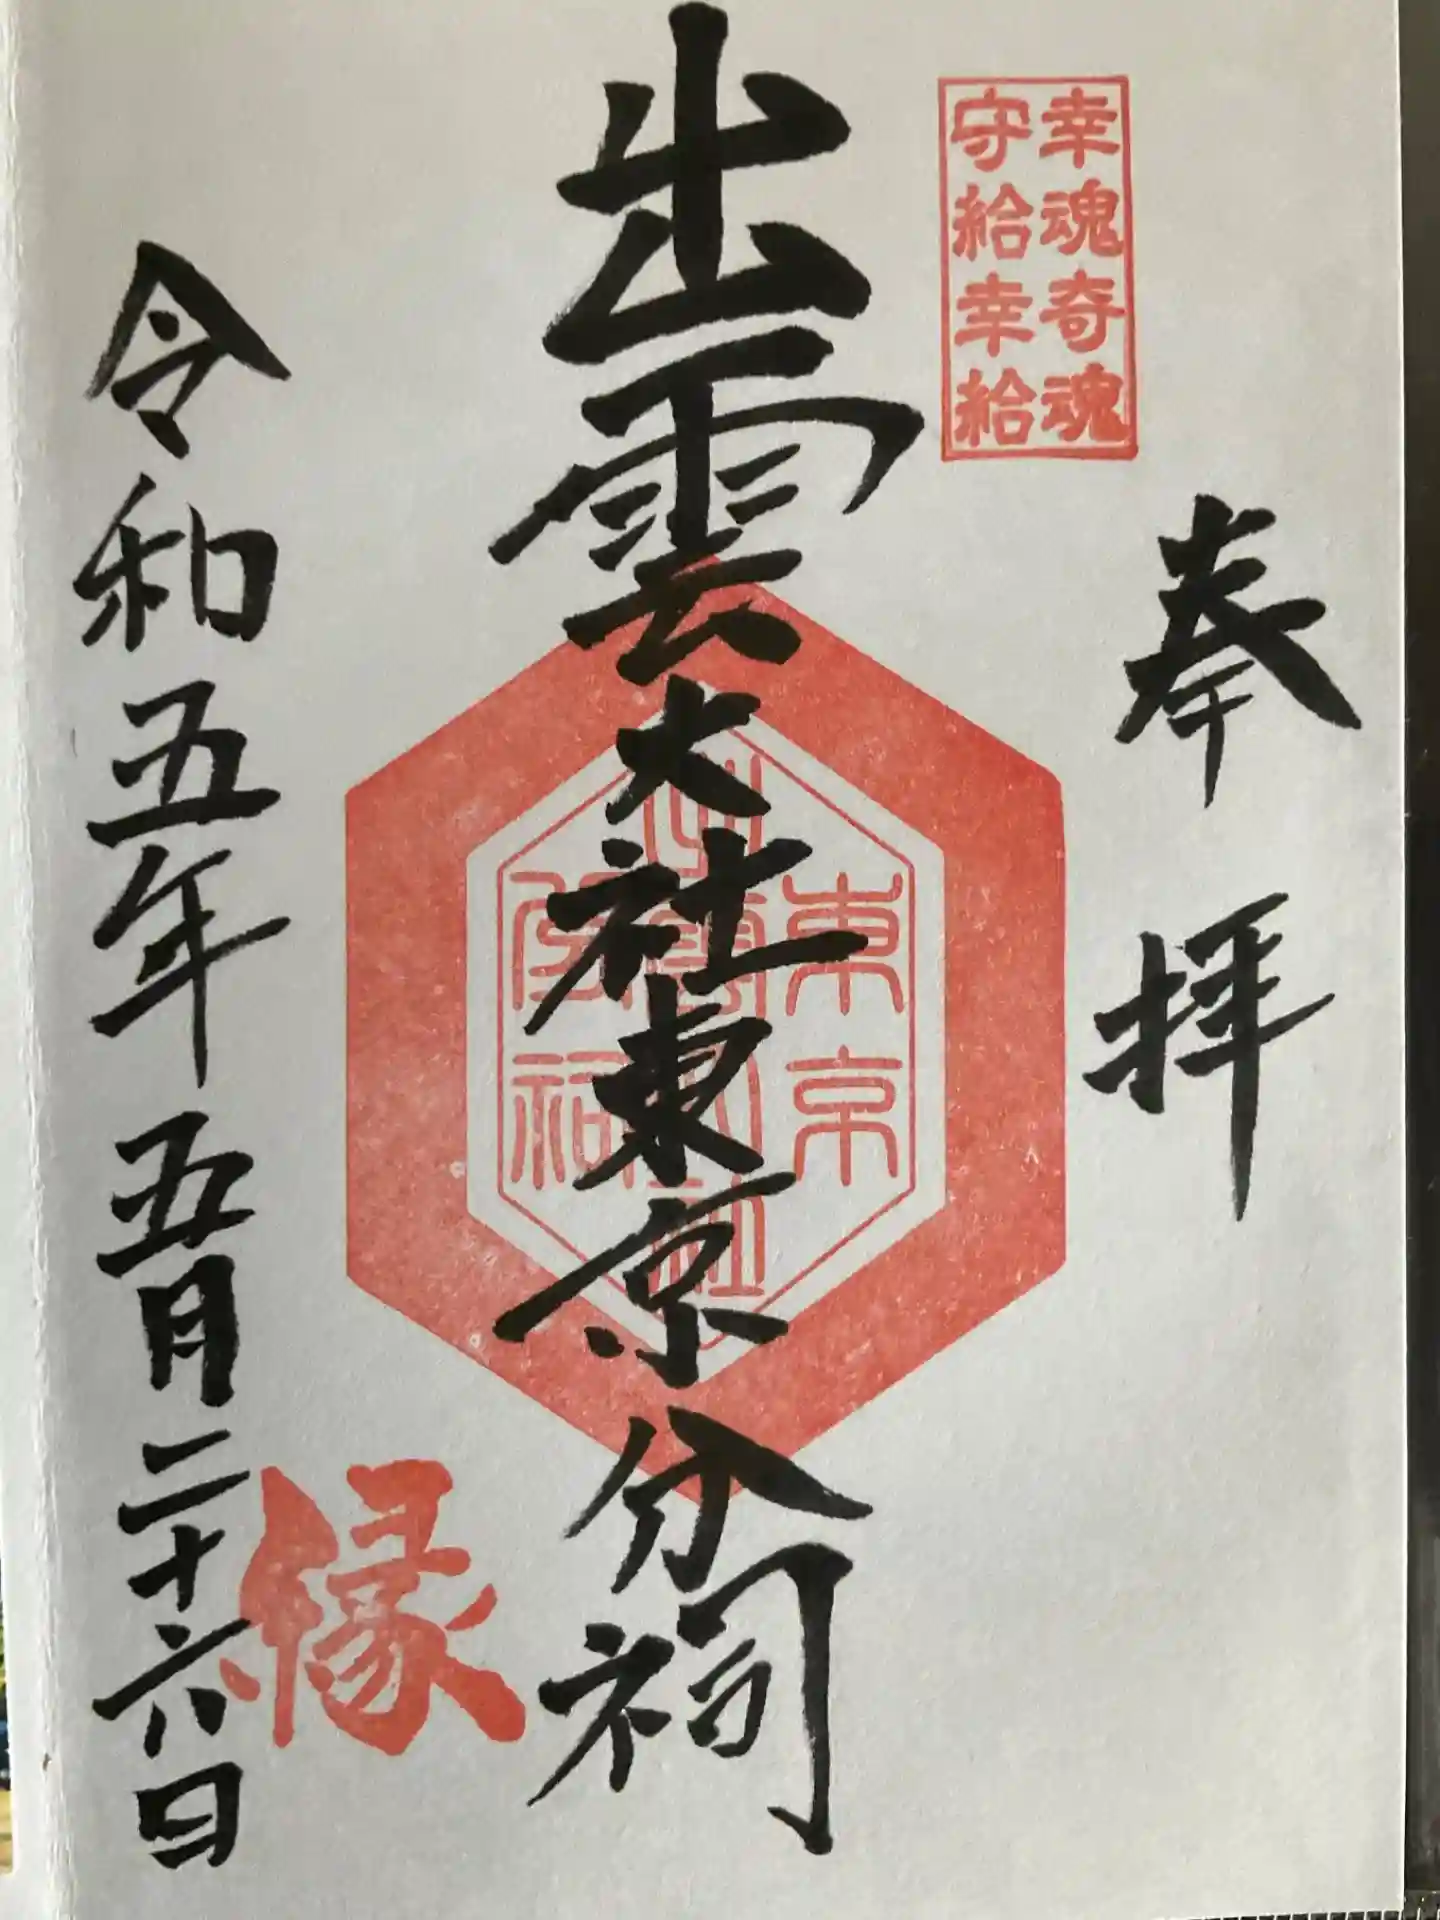 奉拝
幸魂奇魂
守給幸給
出雲大社東京分祠
東京
出雲大社
分祠
縁
令和五年五月二十六日